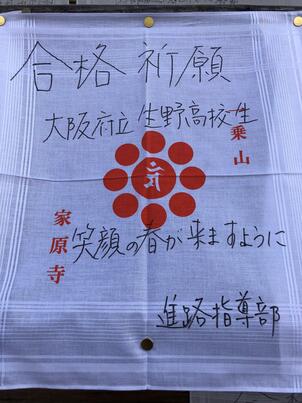 合格祈願
大阪府立生野高校生
一乗山
家原寺
笑顔の春が来ますように
進路指導部